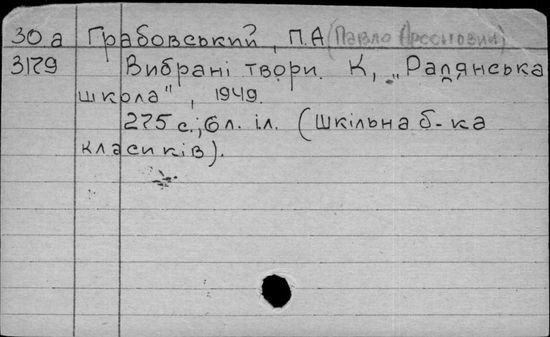 30a Грабовський, П.А (Павло Арсенович)
3179 Вибрані твори. К, „Радянська
школа", 1949.
275 с.; 6 л. іл. (Шкільна б-ка
класиків).